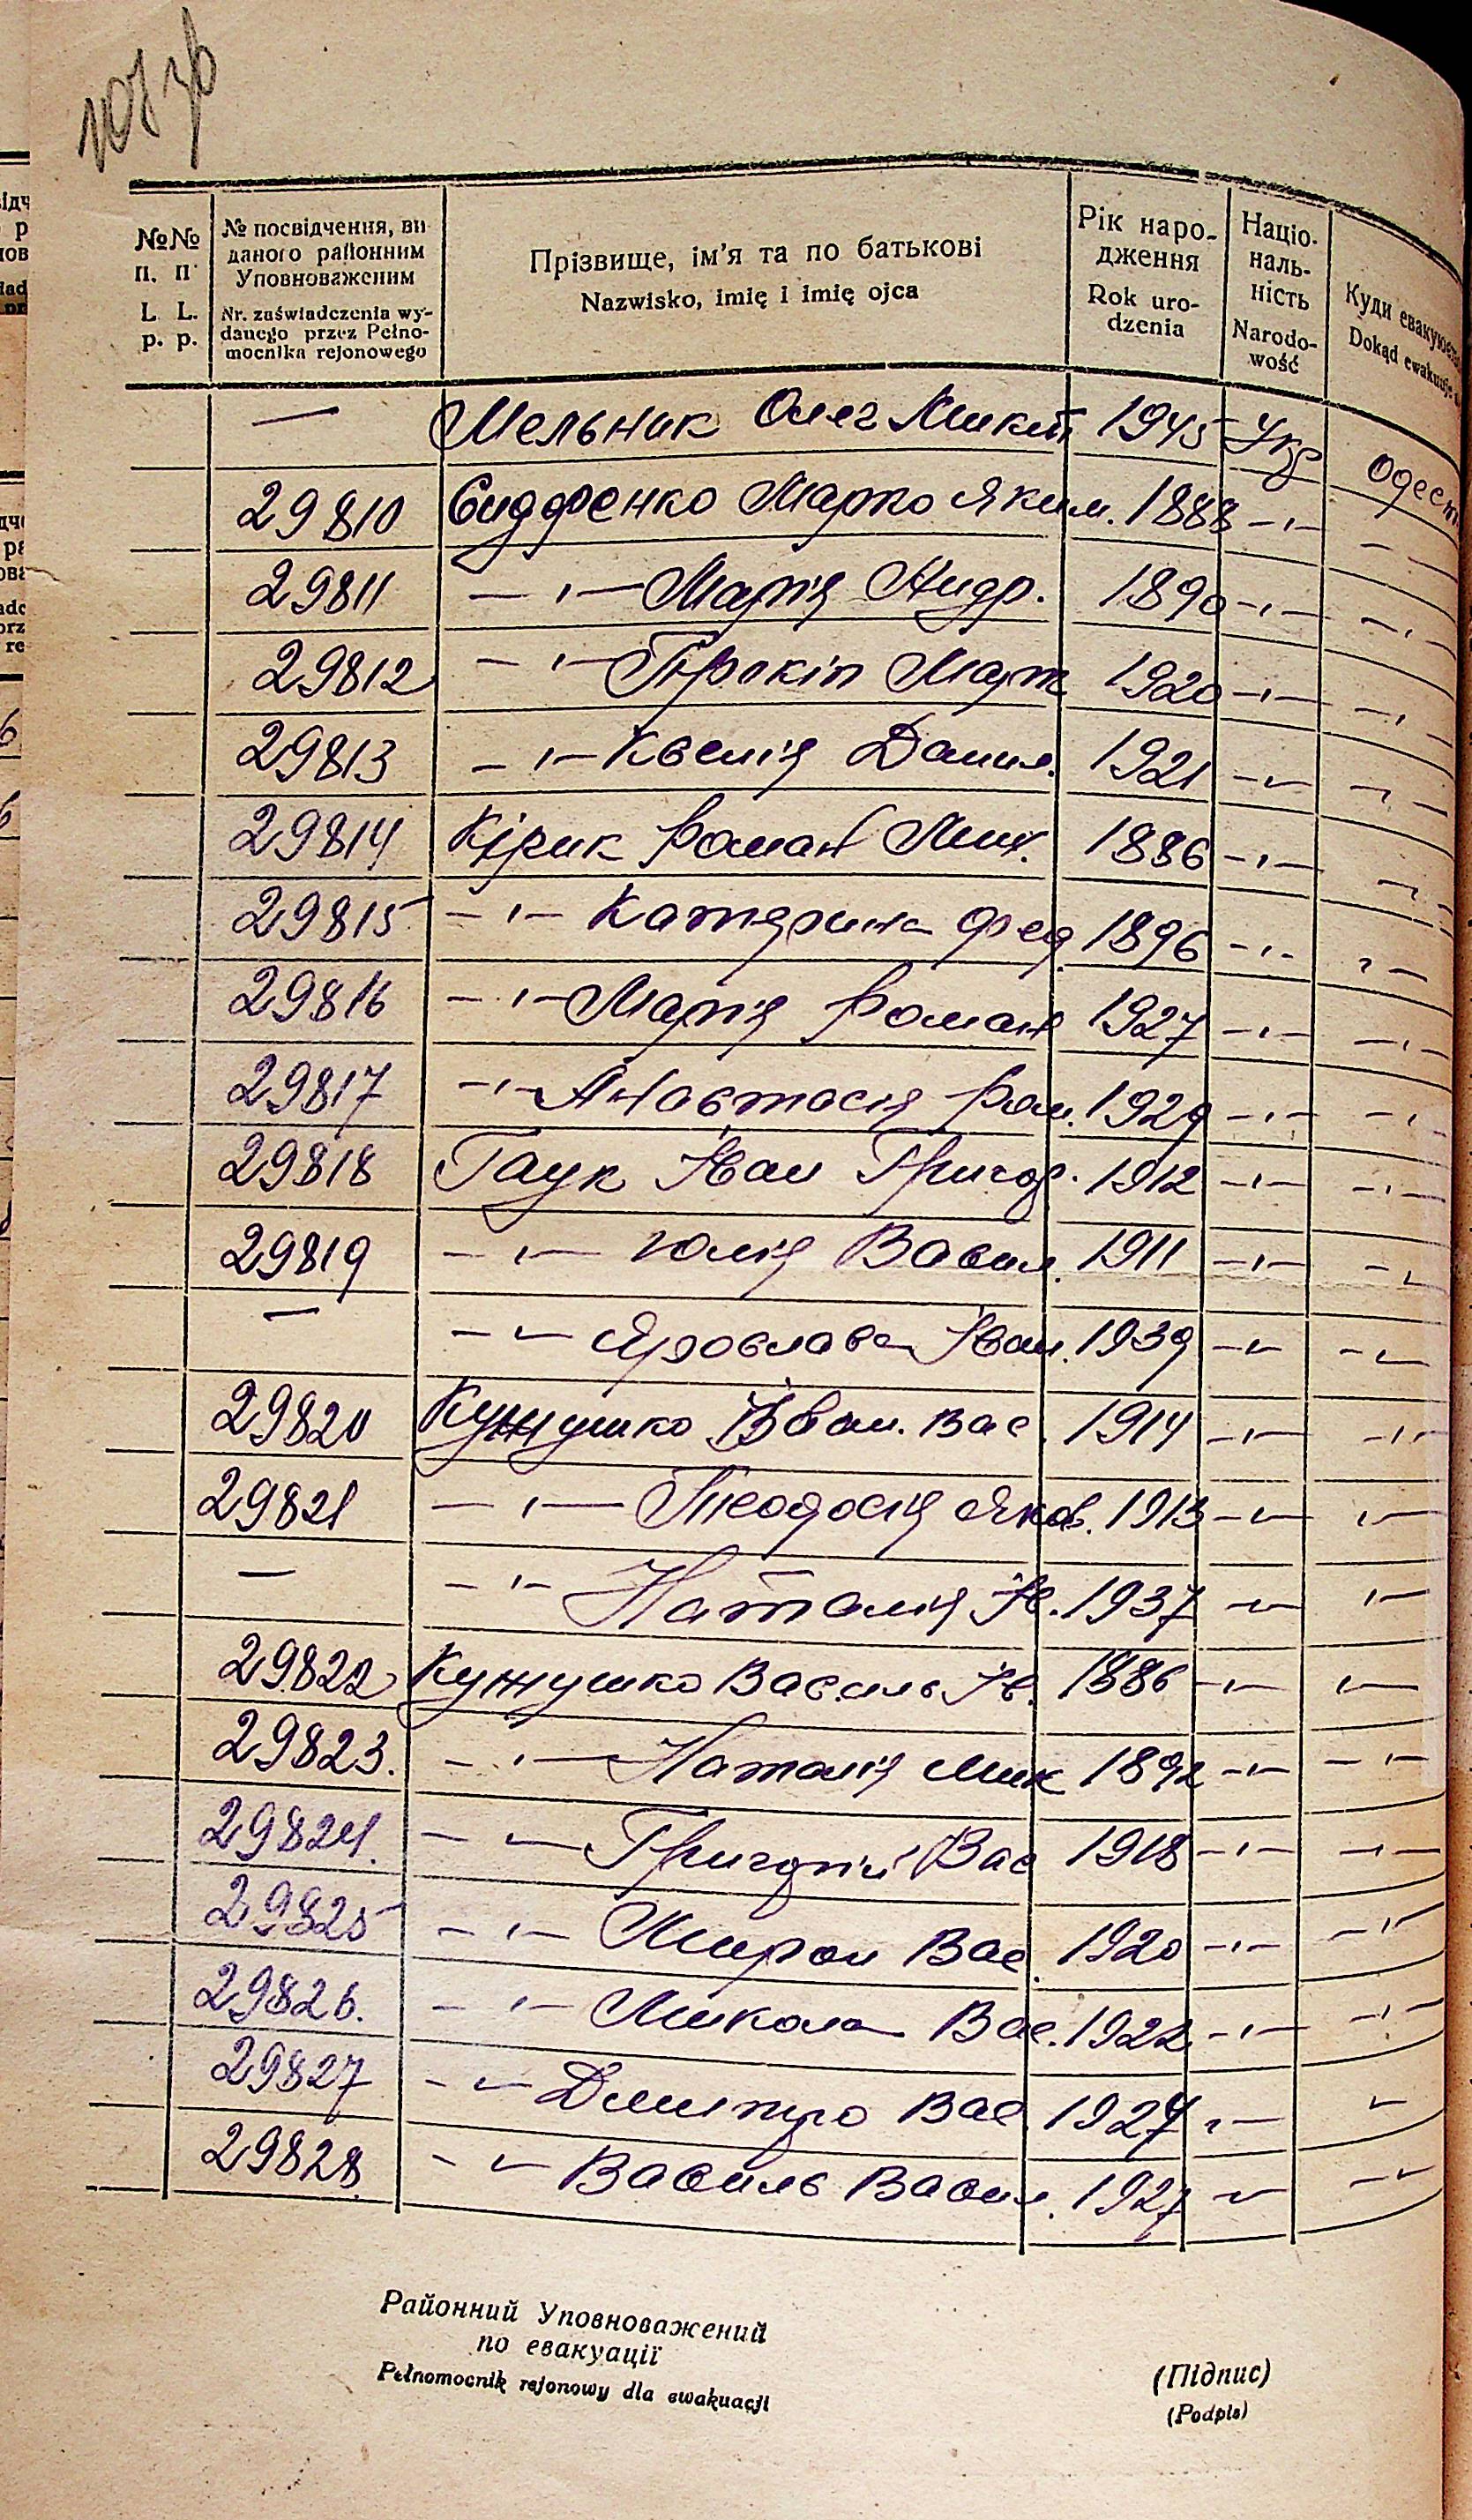 107 зв
№№ п. п
L. L. p. p.
№ посвідчення, ви
даного районним
Уповноваженим
Nr. zaświadczenia wy-
danego przez Pełno-
mocnika rejonowego
Прізвище, ім'я та по батькові
Nazwisko, imię i imię ojca
Рік наро-
дження
Rok uro-
dzenia
Націо-
наль-
ність
Narodo-
wość
Куди евакуюєть
Dokąd ewakuuje
— Мельник Олег Микит 1945 Укр Одеськ
29810 Сидоренко Марко Яким. 1888 -"- -"-
29811 -"- Марія Андр. 1890 -"- -"-
29812 -"- Прокіп Марк 1920 -"- -"-
29813 -"- Ксенія Данил. 1921 -"- -"-
29814 Кірик Роман Мих. 1886 -"- -"-
29815 -"- Катерина Фед. 1896 -"- -"-
29816 -"- Марія Роман 1927 -"- -"-
29817 -"- Анастасія Ром. 1929 -"- -"-
29818 Гаук Іван Григор. 1912 -"- -"-
29819 -"- Юлія Васил. 1911 -"- -"-
— -"- Ярослава Іван. 1939 -"- -"-
29820 Кужушко Іван. Вас. 1914 -"- -"-
29821 -"- Теодосія Яков. 1913 -"- -"-
— -"- Наталія Ів. 1937 -"- -"-
29822 Кужушко Василь Ів. 1886 -"- -"-
29823. -"- Наталія Мик 1892 -"- -"-
29824. -"- Григорій Вас 1918 -"- -"-
29825 -"- Мирон Вас. 1920 -"- -"-
29826. -"- Микола Вас. 1922 -"- -"-
29827 -"- Дмитро Вас. 1924 -"- -"-
29828. -"- Василь Васил. 1927 -"- -"-
Районний Уповноважений
по евакуації
Pełnomocnik rejonowy dla ewakuacji
(Підпис)
(Podpis)